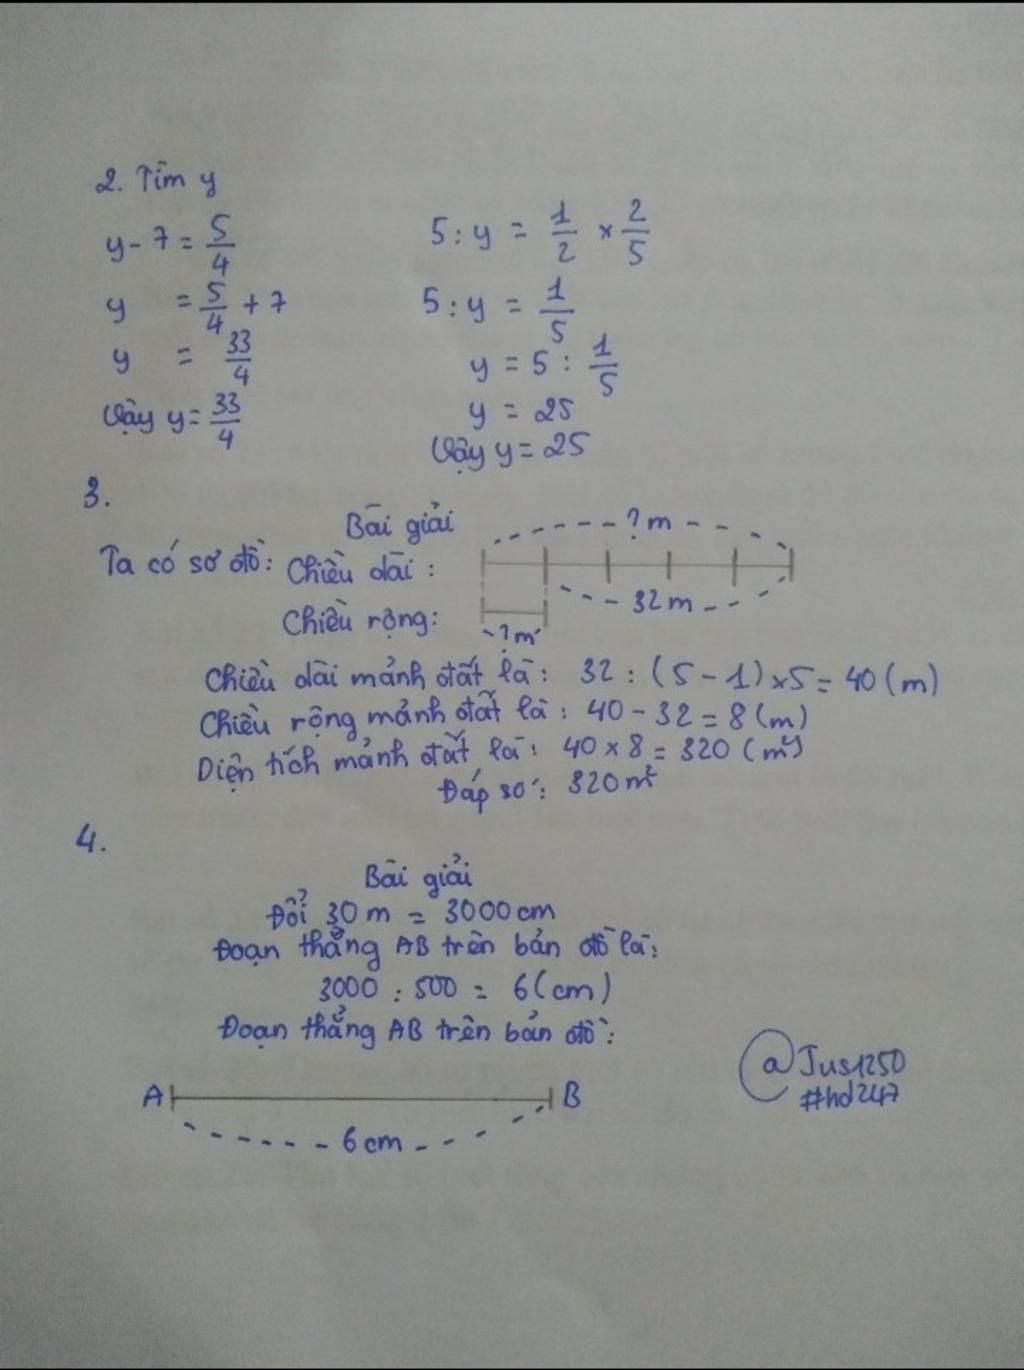 2. Tìm y
y - 7 = 5/4
y = 5/4 + 7
y = 33/4
Vậy y = 33/4
5 : y = 1/2 × 2/5
5 : y = 1/5
y = 5 : 1/5
y = 25
Vậy y = 25
3.
Bài giải
? m
Ta có sơ đồ: Chiều dài :
32 m
Chiều rộng:
? m
Chiều dài mảnh đất là : 32 : (5 - 1) × 5 = 40 (m)
Chiều rộng mảnh đất là : 40 - 32 = 8 (m)
Diện tích mảnh đất là : 40 × 8 = 320 (m²)
Đáp số : 320 m²
4.
Bài giải
Đổi 30 m = 3000 cm
Đoạn thẳng AB trên bản đồ là:
3000 : 500 = 6 (cm)
Đoạn thẳng AB trên bản đồ :
A B
6 cm
@Jus1250
#hd247